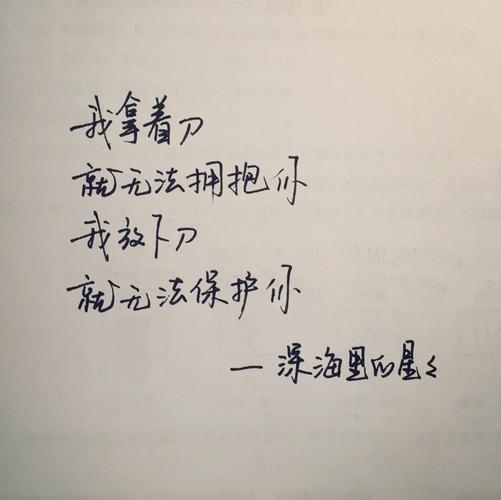 我拿着刀
就无法拥抱你
我放下刀
就无法保护你
—深海里的星々